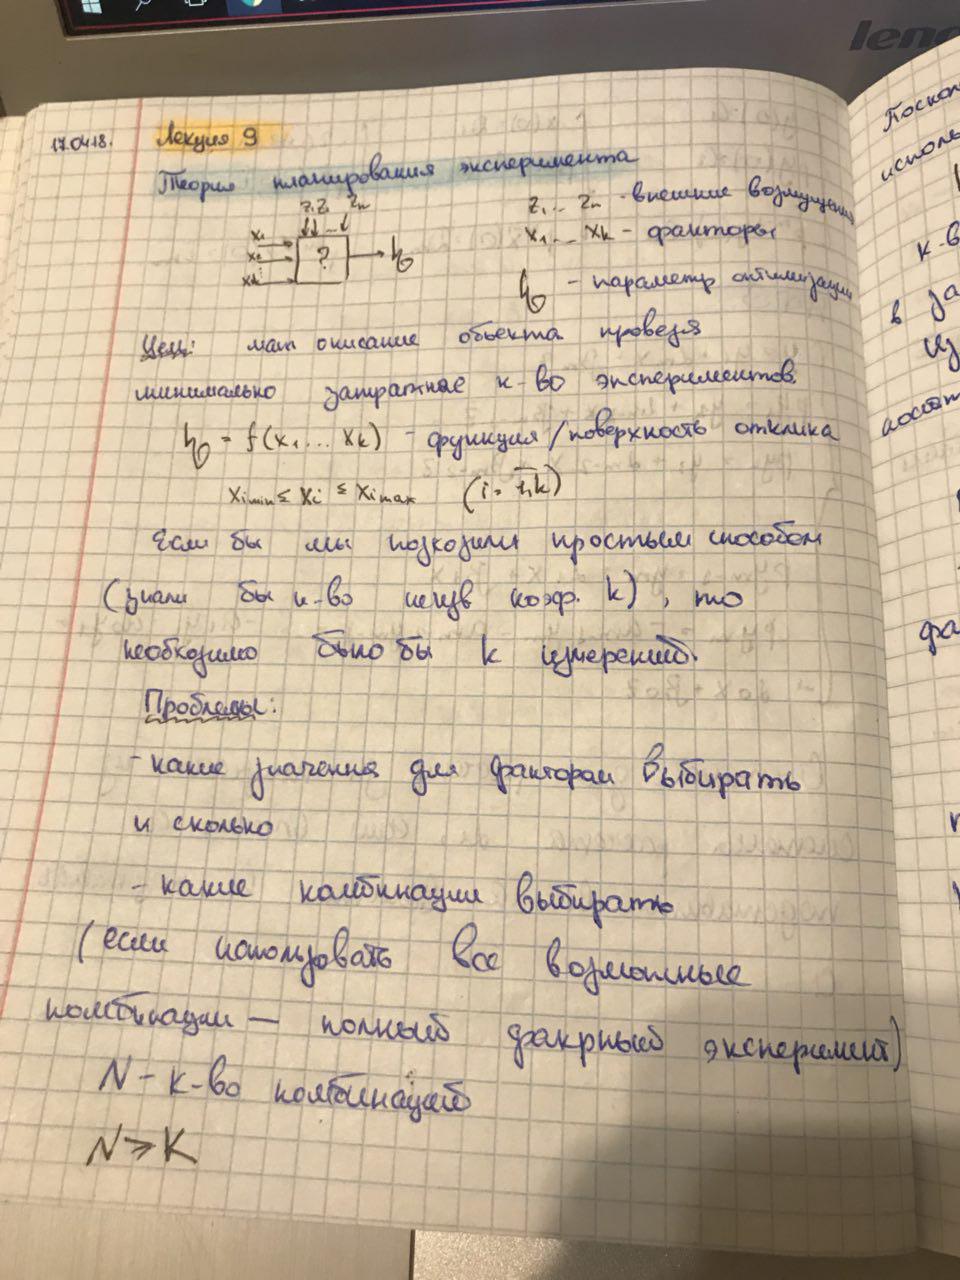 17.04.18.
Лекция 9
Теория планирования эксперимента
z₁ z₂ ... zₙ
x₁
x₂
xₖ
?
η
z₁ ... zₙ - внешние возмущения
x₁ ... xₖ - факторы
η - параметр оптимизации
Цель: мат описание объекта проведя
минимально затратное к-во экспериментов.
η = f(x₁ ... xₖ) - функция/поверхность отклика
xᵢₘᵢₙ ≤ xᵢ ≤ xᵢₘₐₓ (i = 1,k)
Если бы мы подходили простым способом
(знали бы к-во коэф. k), то
необходимо было бы k измерений.
Проблемы:
- какие значения для факторам выбирать
и сколько
- какие комбинации выбирать
(если использовать все возможные
комбинации — полный факрный эксперимент)
N - к-во комбинаций
N ≥ K
Поскол
исполь
к-в
в за
аосот
фа
lenc